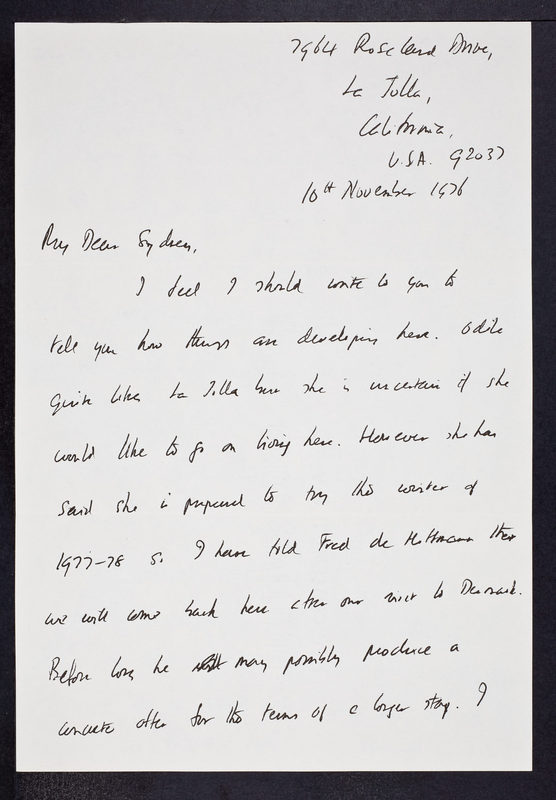 7964 Roseland Drive,
La Jolla,
California,
U.S.A. 92037
10th November 1976
My Dear Sydney,
I feel I should write to you to
tell you how things are developing here. Odile
quite likes La Jolla but she is uncertain if she
would like to go on living here. However she has
said she is prepared to try this winter of
1977-78 so I have told Fred de Hoffmann that
we will come back here after our visit to Denmark.
Before long he may possibly produce a
concrete offer for the terms of a longer stay. I